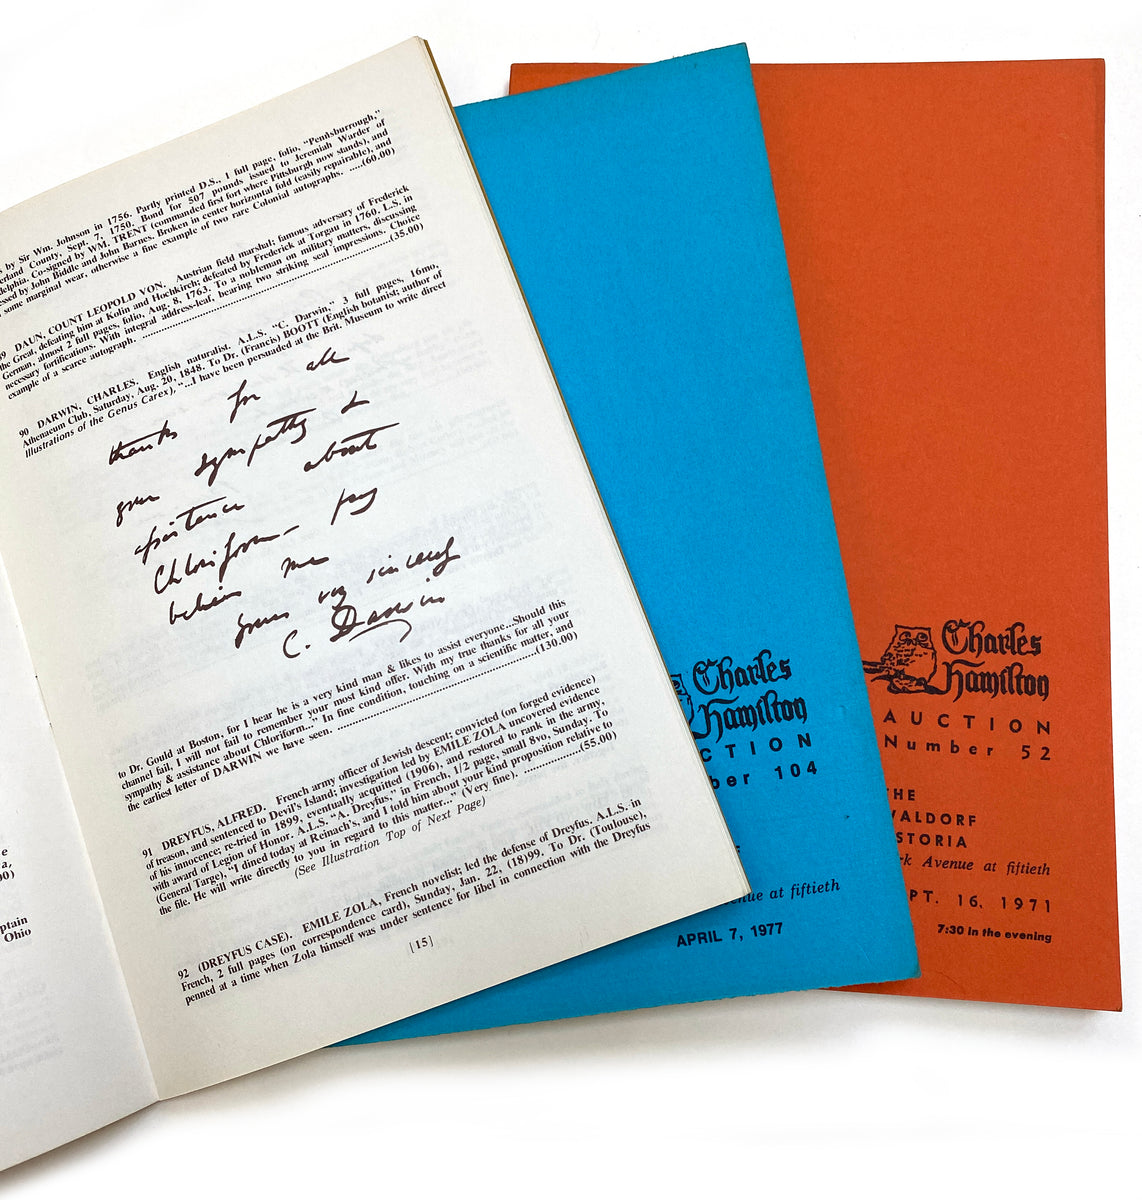 by Sir Wm. Johnson in 1756. Partly printed D.S., 1 full page, folio, "Pennsburrough,"
erland County, Sept. 7, 1750. Bond for 507 pounds issued to Jeremiah Warder of
delphia. Co-signed by WM. TRENT (commanded first fort where Pittsburgh now stands), and
essed by John Biddle and John Barnes. Broken in center horizontal fold (easily repairable), and
some marginal wear, otherwise a fine example of two rare Colonial autographs. ....(60.00)
89 DAUN, COUNT LEOPOLD VON. Austrian field marshal; famous adversary of Frederick
the Great, defeating him at Kolin and Hochkirch; defeated by Frederick at Torgau in 1760. L.S. in
German, almost 2 full pages, folio, Aug. 8, 1763. To a nobleman on military matters, discussing
necessary fortifications. With integral address-leaf, bearing two striking seal impressions. Choice
example of a scarce autograph. ....(35.00)
90 DARWIN, CHARLES. English naturalist. A.L.S. "C. Darwin," 3 full pages, 16mo,
Athenaeum Club, Saturday, Aug. 20, 1848. To Dr. (Francis) BOOTT (English botanist; author of
Illustrations of the Genus Carex), "...I have been persuaded at the Brit. Museum to write direct
thanks for all
your sympathy &
assistance about
Chloriform— pray
believe me
yours very sincerely
C. Darwin
to Dr. Gould at Boston, for I hear he is a very kind man & likes to assist everyone...Should this
channel fail, I will not fail to remember your most kind offer. With my true thanks for all your
sympathy & assistance about Chloriform..." In fine condition, touching on a scientific matter, and
the earliest letter of DARWIN we have seen. ....(130.00)
91 DREYFUS, ALFRED. French army officer of Jewish descent; convicted (on forged evidence)
of treason, and sentenced to Devil's Island; investigation led by EMILE ZOLA uncovered evidence
of his innocence; re-tried in 1899, eventually acquitted (1906), and restored to rank in the army,
with award of Legion of Honor. A.L.S. "A. Dreyfus," in French, 1/2 page, small 8vo, Sunday. To
(General Targe), "I dined today at Reinach's, and I told him about your kind proposition relative to
the file. He will write directly to you in regard to this matter..." (Very fine). ....(55.00)
(See Illustration Top of Next Page)
92 (DREYFUS CASE). EMILE ZOLA, French novelist; led the defense of Dreyfus. A.L.S. in
French, 2 full pages (on correspondence card), Sunday, Jan. 22, (18)99. To Dr. (Toulouse),
penned at a time when Zola himself was under sentence for libel in connection with the Dreyfus
[15]
e
a,
00)
ptain
Ohio
Charles
Hamilton
CTION
ber 104
nue at fiftieth
APRIL 7, 1977
Charles
Hamilton
AUCTION
Number 52
THE
WALDORF
STORIA
rk Avenue at fiftieth
PT. 16, 1971
7:30 in the evening